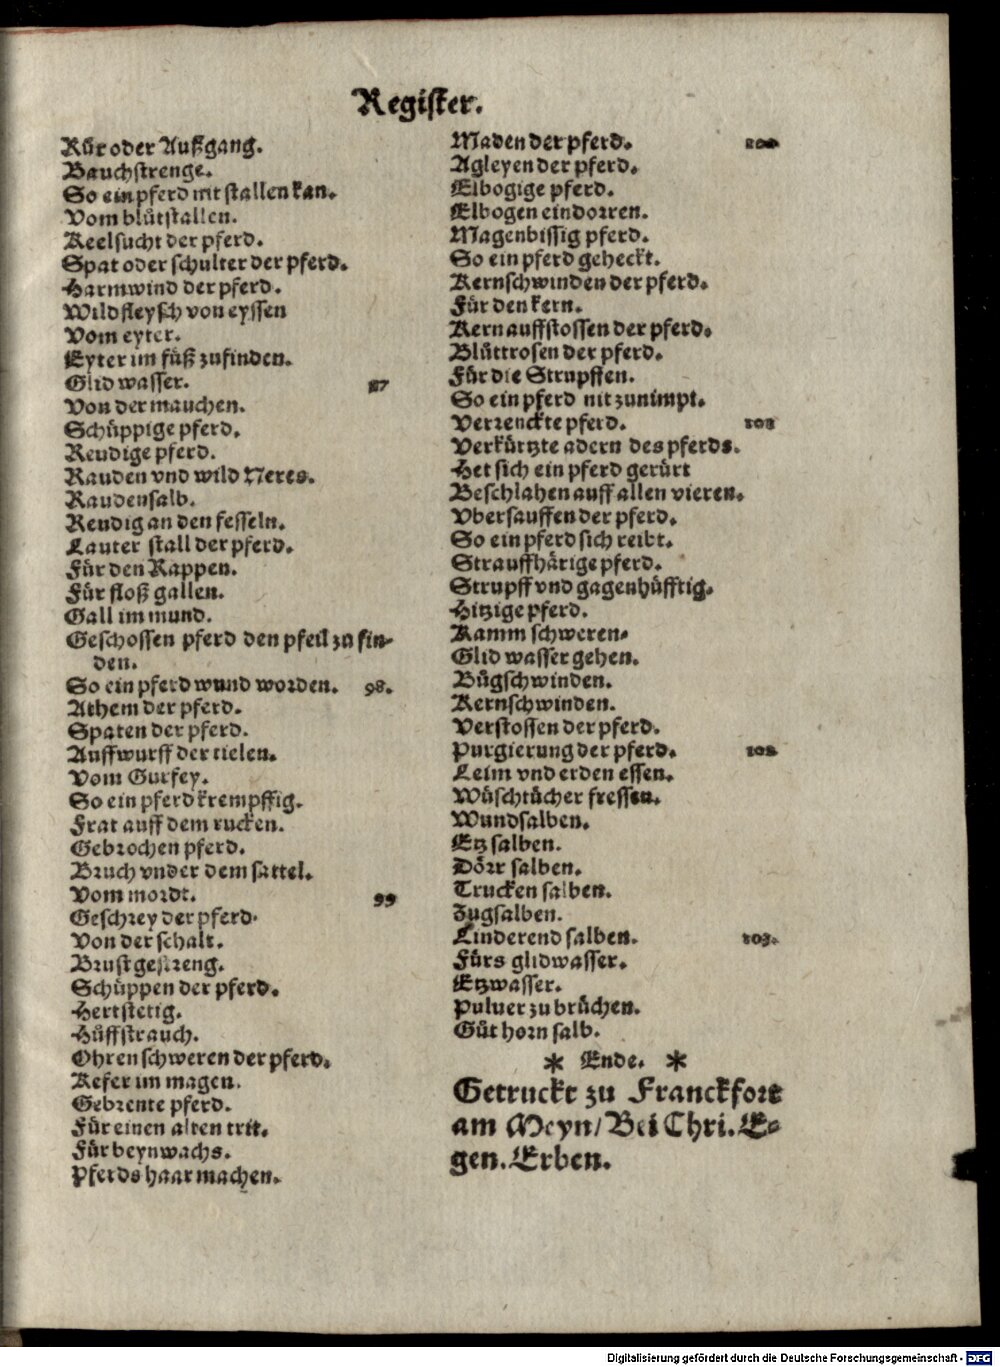 Register.
Rür oder Außgang.
Bauchstrenge.
So ein pferd nit stallen kan.
Vom blůtstallen.
Keelsucht der pferd.
Spat oder schulter der pferd.
Harmwind der pferd.
Wildfleysch von eyssen
Vom eyter.
Eyter im fůß zufinden.
Glid wasser. 97
Von der mauchen.
Schüppige pferd.
Reudige pferd.
Rauden vnd wild Neres.
Raudensalb.
Reudig an den fesseln.
Lauter stall der pferd.
Für den Rappen.
Für floß gallen.
Gall im mund.
Geschossen pferd den pfeil zu fin-
den.
So ein pferd wund worden. 98.
Athem der pferd.
Spaten der pferd.
Auffwurff der tielen.
Vom Gurfey.
So ein pferd krempffig.
Frat auff dem rucken.
Gebrochen pferd.
Bruch vnder dem sattel.
Vom mordt. 99
Geschrey der pferd.
Von der schalt.
Brustgestreng.
Schüppen der pferd.
Hertstetig.
Hůffstrauch.
Ohren schweren der pferd.
Kefer im magen.
Gebrente pferd.
Für einen alten trit.
Für beynwachs.
Pferds haar machen.
Maden der pferd. 100
Agleyen der pferd.
Elbogige pferd.
Elbogen eindorren.
Magenbissig pferd.
So ein pferd geheckt.
Kernschwinden der pferd.
Für den kern.
Kern auffstossen der pferd.
Blůttrosen der pferd.
Für die Strupffen.
So ein pferd nit zunimpt.
Verrenckte pferd. 101
Verkürtzte adern des pferds.
Het sich ein pferd gerürt
Beschlahen auff allen vieren.
Vbersauffen der pferd.
So ein pferd sich reibt.
Strauffhärige pferd.
Strupff vnd gagenhůfftig.
Hitzige pferd.
Kamm schweren.
Glid wasser gehen.
Bůgschwinden.
Kernschwinden.
Verstossen der pferd.
Purgierung der pferd. 102
Leim vnd erden essen.
Wüschtücher fressen.
Wundsalben.
Etz salben.
Dörr salben.
Trucken salben.
Zugsalben.
Linderend salben. 103.
Fürs glidwasser.
Etzwasser.
Puluer zu brüchen.
Gůt horn salb.
* Ende. *
Getruckt zu Franckfort
am Meyn/ Bei Chri. E-
gen. Erben.
Digitalisierung gefördert durch die Deutsche Forschungsgemeinschaft - DFG